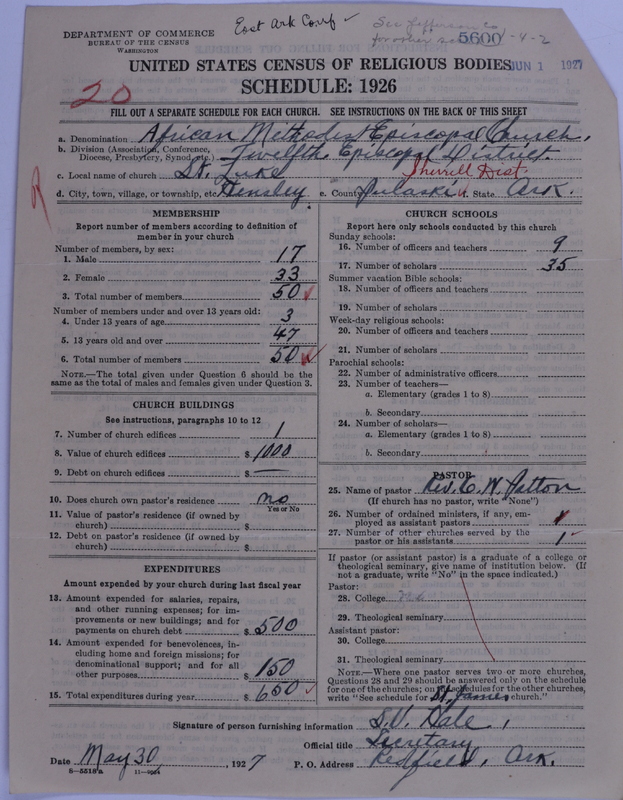 East Ark Conf ✓
See Jefferson Co
for other
5600
1-4-2
DEPARTMENT OF COMMERCE
BUREAU OF THE CENSUS
WASHINGTON
JUN 1 1927
UNITED STATES CENSUS OF RELIGIOUS BODIES
SCHEDULE: 1926
20
FILL OUT A SEPARATE SCHEDULE FOR EACH CHURCH. SEE INSTRUCTIONS ON THE BACK OF THIS SHEET
a. Denomination African Methodist Episcopal Church,
b. Division (Association, Conference,
Diocese, Presbytery, Synod, etc.) Twelfth Episcopal District.
c. Local name of church St. Luke Sherrill Dist.
d. City, town, village, or township, etc. Hensley e. County Pulaski State Ark.
R
MEMBERSHIP
Report number of members according to definition of
member in your church
Number of members, by sex:
1. Male 17
2. Female 33
3. Total number of members 50 ✓
Number of members under and over 13 years old:
4. Under 13 years of age 3
5. 13 years old and over 47
6. Total number of members 50 ✓
NOTE.—The total given under Question 6 should be the
same as the total of males and females given under Question 3.
CHURCH BUILDINGS
See instructions, paragraphs 10 to 12
7. Number of church edifices 1
8. Value of church edifices $ 1000
9. Debt on church edifices $ —
10. Does church own pastor's residence no
Yes or No
11. Value of pastor's residence (if owned by
church) $
12. Debt on pastor's residence (if owned by
church) $
EXPENDITURES
Amount expended by your church during last fiscal year
13. Amount expended for salaries, repairs,
and other running expenses; for im-
provements or new buildings; and for
payments on church debt $ 500
14. Amount expended for benevolences, in-
cluding home and foreign missions; for
denominational support; and for all
other purposes $ 150
15. Total expenditures during year $ 650 ✓
CHURCH SCHOOLS
Report here only schools conducted by this church
Sunday schools:
16. Number of officers and teachers 9
17. Number of scholars 35
Summer vacation Bible schools:
18. Number of officers and teachers
19. Number of scholars
Week-day religious schools:
20. Number of officers and teachers
21. Number of scholars
Parochial schools:
22. Number of administrative officers
23. Number of teachers—
a. Elementary (grades 1 to 8)
b. Secondary
24. Number of scholars—
a. Elementary (grades 1 to 8)
b. Secondary
PASTOR
25. Name of pastor Rev. C. W. Patton
(If church has no pastor, write "None")
26. Number of ordained ministers, if any, em-
ployed as assistant pastors
27. Number of other churches served by the
pastor or his assistants 1 ✓
If pastor (or assistant pastor) is a graduate of a college or
theological seminary, give name of institution below. (If
not a graduate, write "No" in the space indicated.)
Pastor:
28. College
29. Theological seminary
Assistant pastor:
30. College
31. Theological seminary
NOTE.—Where one pastor serves two or more churches,
Questions 28 and 29 should be answered only on the schedule
for one of the churches; on the schedules for the other churches,
write "See schedule for St. James church."
Signature of person furnishing information S.V. Hale,
Official title Secretary
Date May 30, 1927 P. O. Address Redfield, Ark.
8—5518a 11—9024